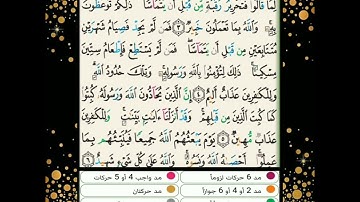 لِمَا قَالُوا۟ فَتَحْرِيرُ رَقَبَةٍ مِّن قَبْلِ أَن يَتَمَآسَّا ۚ ذَٰلِكُمْ تُوعَظُونَ
بِهِۦ ۚ وَٱللَّهُ بِمَا تَعْمَلُونَ خَبِيرٌ ٣ فَمَن لَّمْ يَجِدْ فَصِيَامُ شَهْرَيْنِ
مُتَتَابِعَيْنِ مِن قَبْلِ أَن يَتَمَآسَّا ۖ فَمَن لَّمْ يَسْتَطِعْ فَإِطْعَامُ سِتِّينَ
مِسْكِينًا ۚ ذَٰلِكَ لِتُؤْمِنُوا۟ بِٱللَّهِ وَرَسُولِهِۦ ۚ وَتِلْكَ حُدُودُ ٱللَّهِ ۗ
وَلِلْكَٰفِرِينَ عَذَابٌ أَلِيمٌ ٤ إِنَّ ٱلَّذِينَ يُحَآدُّونَ ٱللَّهَ وَرَسُولَهُۥ كُبِتُوا۟
كَمَا كُبِتَ ٱلَّذِينَ مِن قَبْلِهِمْ ۚ وَقَدْ أَنزَلْنَآ ءَايَٰتٍۭ بَيِّنَٰتٍ ۚ وَلِلْكَٰفِرِينَ
عَذَابٌ مُّهِينٌ ٥ يَوْمَ يَبْعَثُهُمُ ٱللَّهُ جَمِيعًا فَيُنَبِّئُهُم بِمَا
عَمِلُوٓا۟ ۚ أَحْصَىٰهُ ٱللَّهُ وَنَسُوهُ ۚ وَٱللَّهُ عَلَىٰ كُلِّ شَىْءٍ شَهِيدٌ ٦
مد 6 حركات لزوماً مد واجب 4 أو 5 حركات
مد 2 أو 4 أو 6 جوازاً مد حركتان